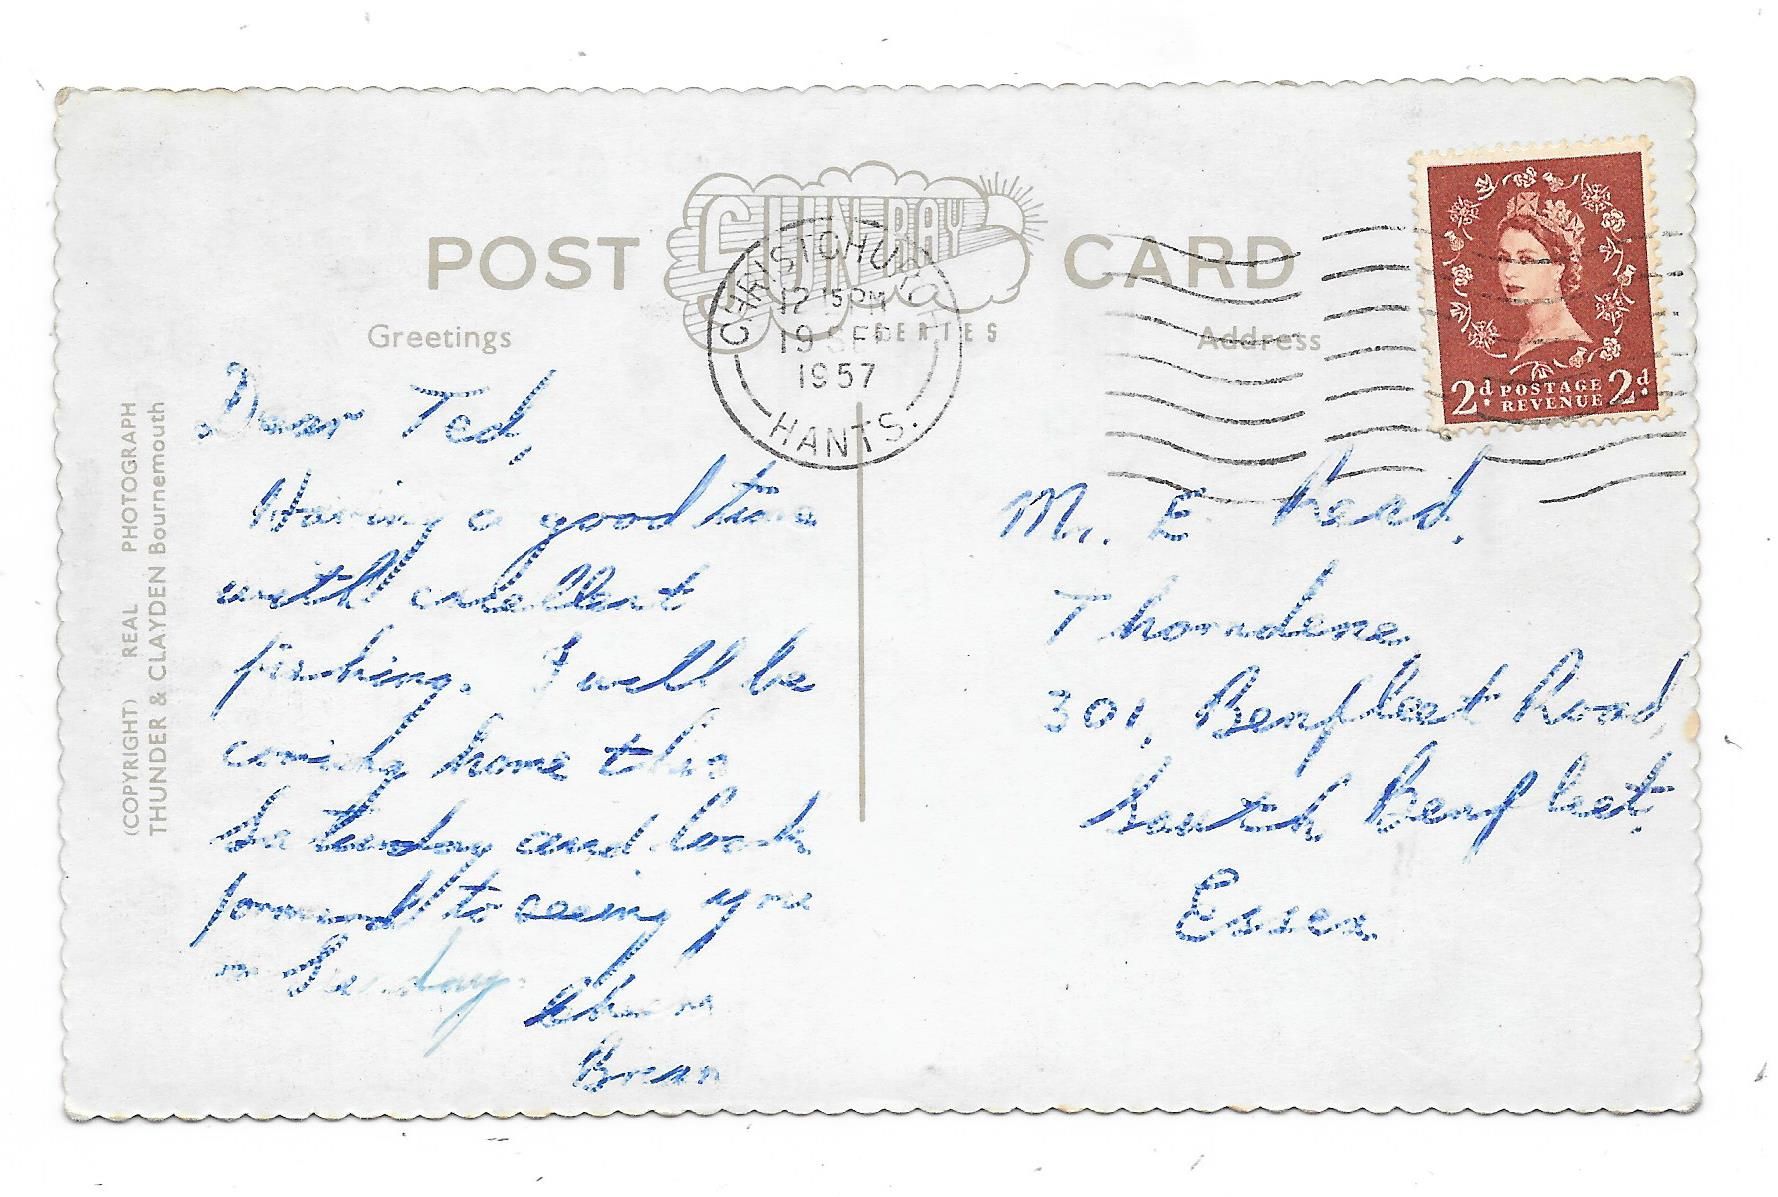 POST
SUN RAY
SERIES
CARD
Greetings
Address
CHRISTCHURCH
12 15 PM
19 SEP
1957
HANTS.
2d POSTAGE 2d
REVENUE
(COPYRIGHT) REAL PHOTOGRAPH
THUNDER & CLAYDEN Bournemouth
Dear Ted,
Having a good time
with excellent
fishing. I will be
coming home this
Saturday and look
forward to seeing you
on Sunday.
Cheers
Brian
Mr. E Read,
Thorndene
301, Benfleet Road,
South Benfleet,
Essex.